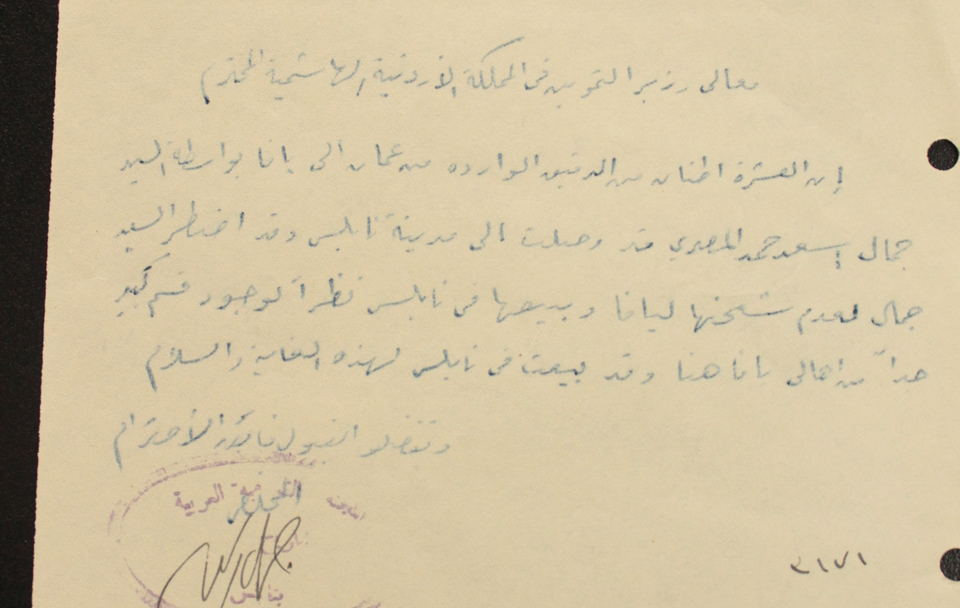 معالي وزير التموين في المملكة الاردنية الهاشمية المحترم
إن العشرة اطنان من الدقيق الوارده من عمان الى يافا بواسطة السيد
جمال اسعد حمد المصري قد وصلت الى مدينة نابلس وقد اضطر السيد
جمال لعدم شحنها ليافا وبيعها في نابلس نظراً لوجود قسم كبير
جداً من اهالي يافا هنا وقد بيعت في نابلس لهذه الغاية والسلام
وتفضلو القبول فائق الأحترام
المخلص
القومية العربية
نابلس
٣١٧١